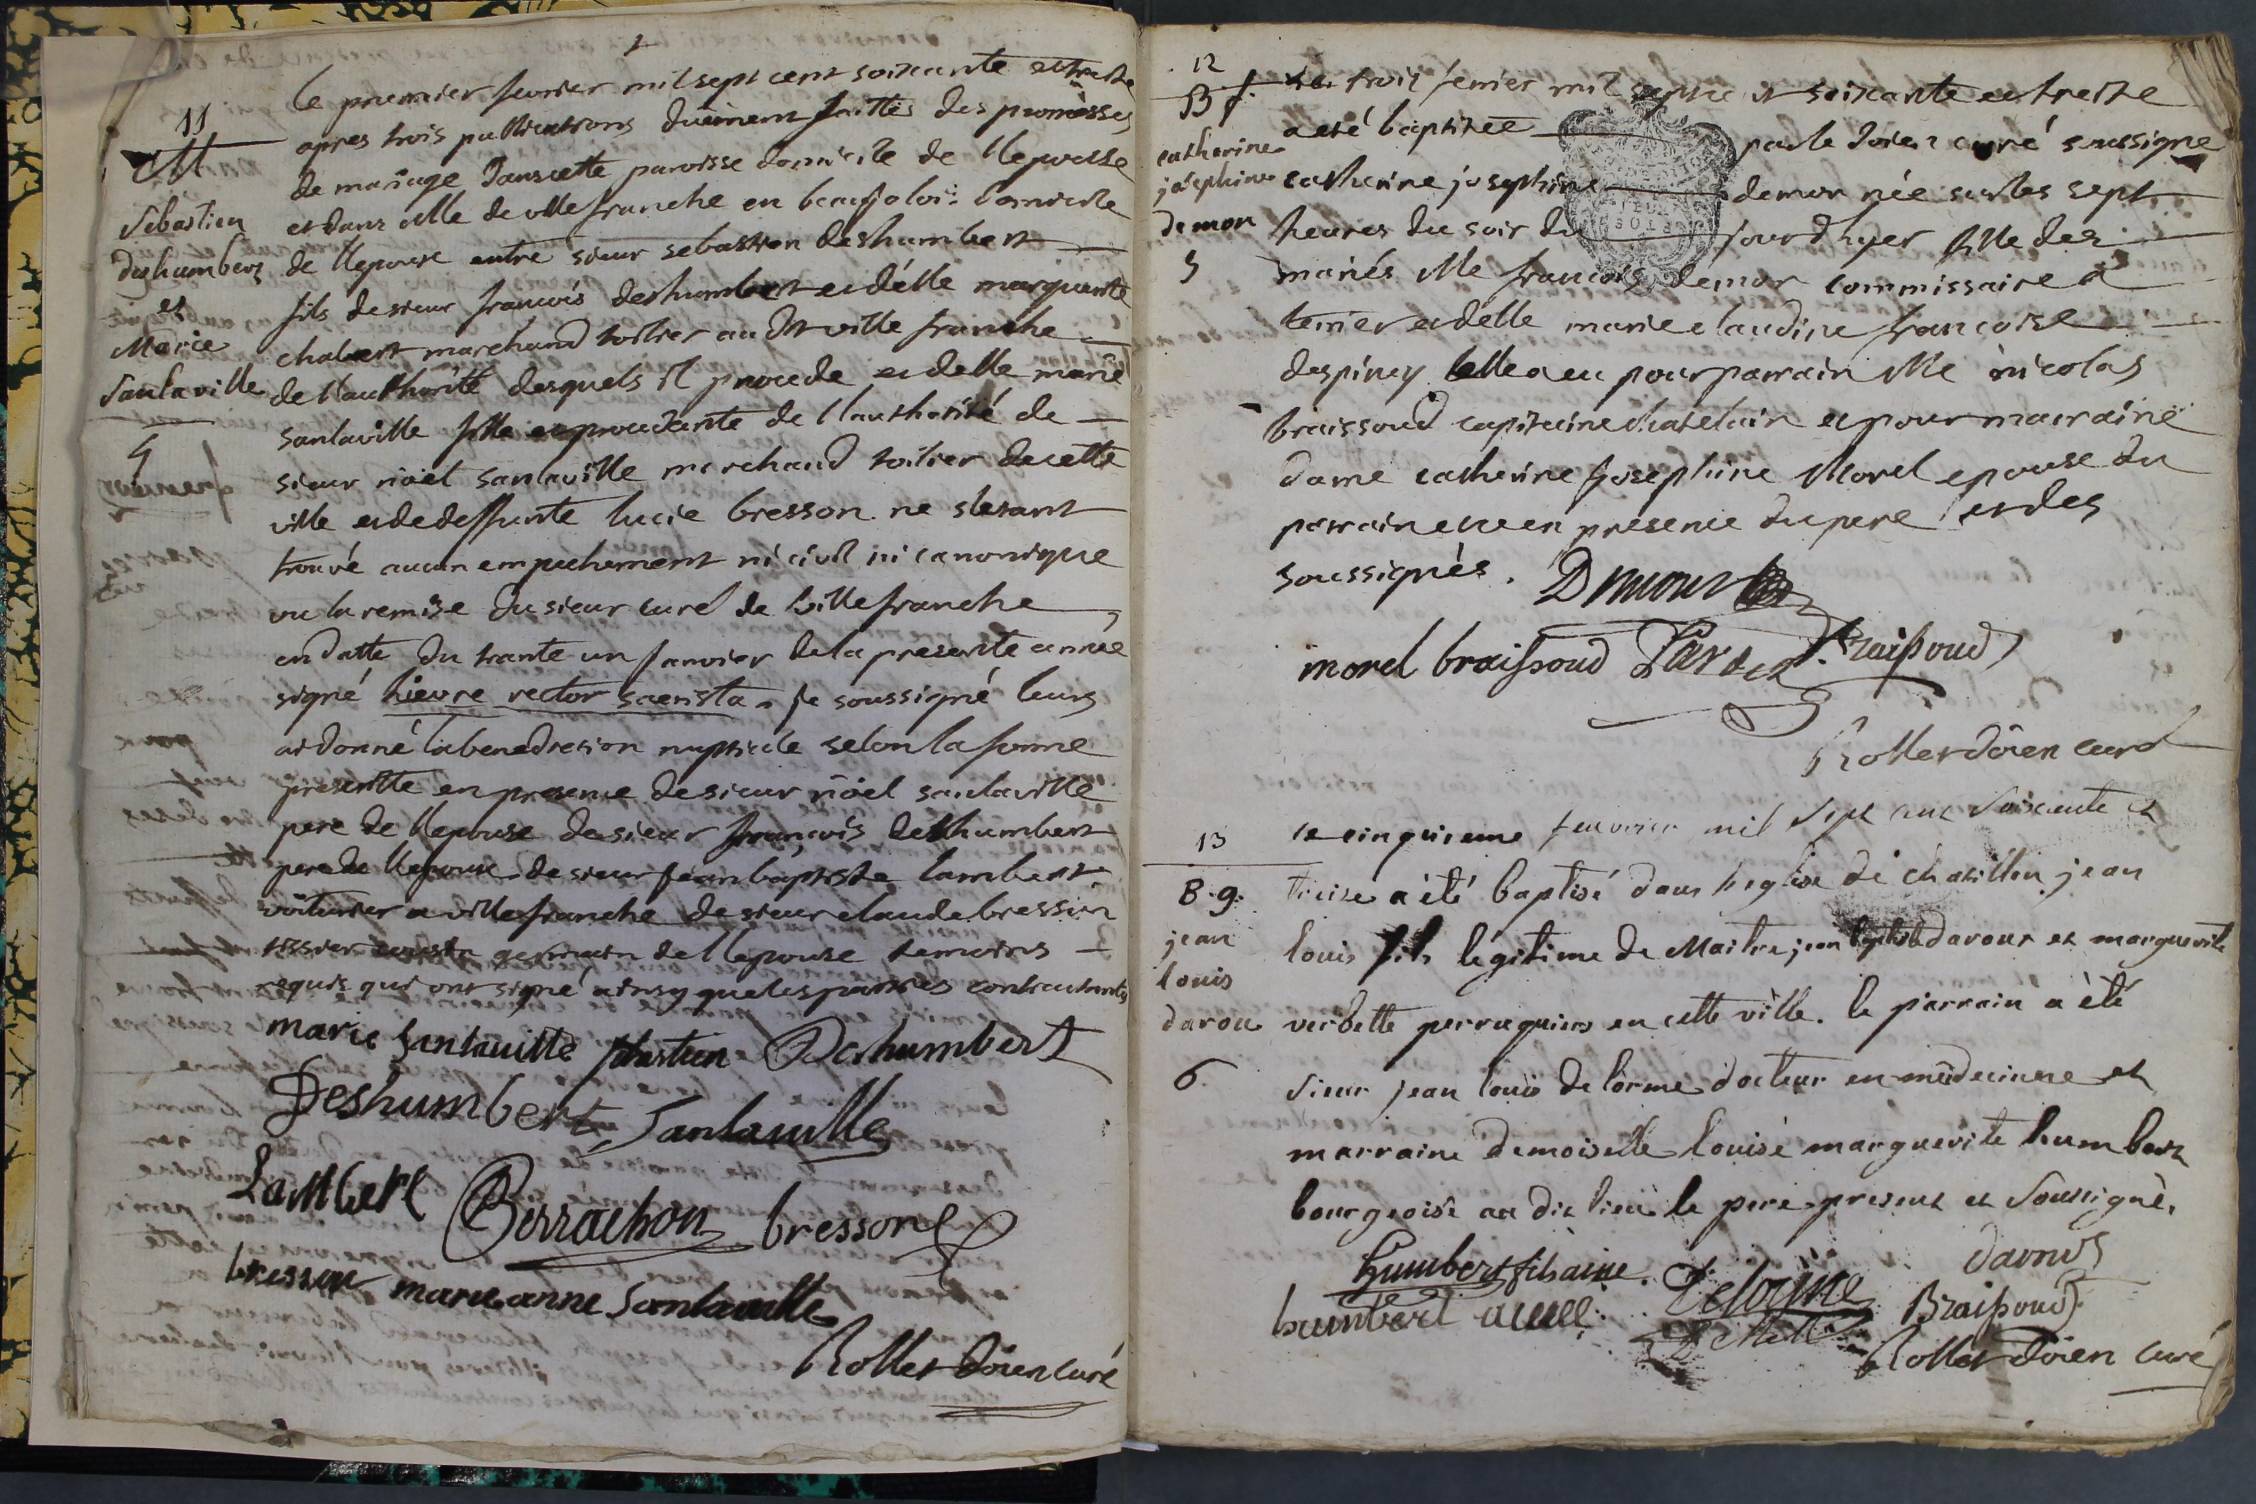 11
M
Sebastien
deshumbert
et
Marie
Santaville
4
le premier fevrier mil sept cent soixante et treize
apres trois publications duëment faittes des promesses
de mariage dans cette paroisse domicile de l'epouse
et dans celle de ville franche en beaujolois domicile
de l'epoux entre sieur sebastien deshumbert
fils de sieur francois deshumbert et délle marguerite
chabert marchand toilier au dit ville franche
de l'authorité desquels il procede et delle marie
santaville fille et procedante de l'authorité de
sieur nöel santaville marchand toilier de cette
ville et de deffunte lucie bresson ne s'etant
trouvé aucun empechement ni civil ni canonique
vu la remise du sieur curé de ville franche
en datte du trante un janvier de la presente année
signé hievre rector sacrista. je soussigné leurs
ai donné la benediction nuptiale selon la forme
prescritte en presence de sieur nöel santaville
pere de l'epouse de sieur françois deshumbert
pere de l'epoux de sieur jean baptiste lambert
voiturier a ville franche de sieur claude bresson
tissier cousin germain de l'epouse temoins
requis qui ont signé ainsy que les parties contractantes
marie santaville sebastien Deshumbert
Deshumbert Santaville
Lambert Berrachon bresson
bresson marie anne Santaville
Rollet doïen curé
12
B f.
catherine
josephine
demor
5
Le trois fevrier mil sept ce nt soixante et treize
a eté baptisée par le doïen curé soussigné
catherine josephine demor née sur les sept
heures du soir du jour d'hyer fille des
mariés Me francois demor commissaire a
terrier et delle marie claudine francoise
despiney elle a eu pour parrain Me nicolas
braissoud capitaine chatelain et pour marraine
dame catherine josephine Morel epouse du
parrain etc en presence du pere et des
soussignés. Demor
morel braissoud Braissoud
Rollet doïen curé
13
B. g.
jean
louis
darou
6
le cinquieme fevrier mil sept cent soixante et
treize a été baptisé dans l'eglise de chatillon jean
louis fils légitime de Maitre jean baptiste daroux et marguerite
verbette perruquiers en cette ville. le parrain a été
sieur jean louis de lorme docteur en medecine et
marraine demoiselle louise marguerite humbert
bourgeoise au dit lieu le pere present et soussigné.
humbert fils ainé. Delorme darnos
humbert Braissoud
Rollet doïen curé